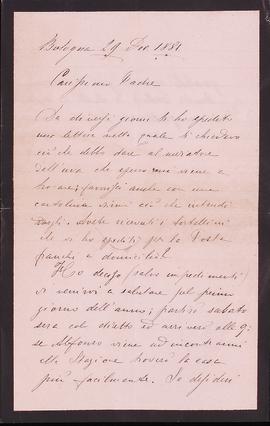 Bologna 29 Dic. 1881
Carissimo Padre
Da diversi giorni ti ho spedito
una lettera nella quale ti chiedevo
ciò che debbo dare al
dell'uva che viene a
anche con una
cartolina ciò che intendi
Avete ricevuti i tortellini
che vi ho spediti per la Posta
franchi a domicilio?
Ho deciso, salvo impedimenti
di venirvi a salutare pel primo
giorno dell'anno; partirò sabato
sera col diretto ed arriverò alle 9;
se Alfonso viene ad incontrarmi
alla Stazione troverò la casa
più facilmente. Io desideri